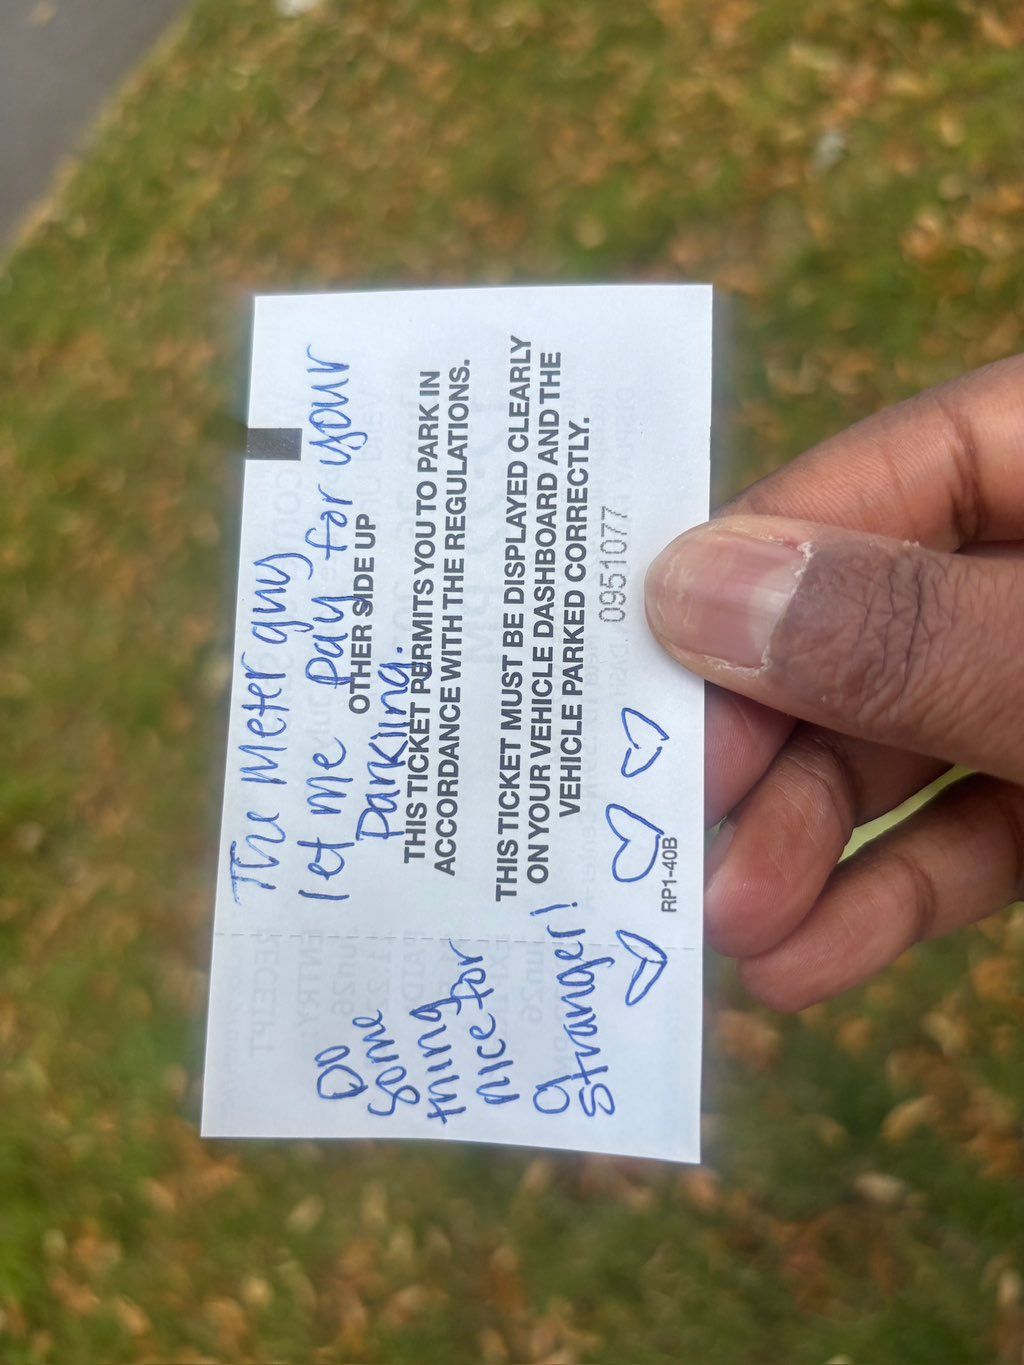 The Meter guy
let me pay for your
parking.
OTHER SIDE UP
THIS TICKET PERMITS YOU TO PARK IN
ACCORDANCE WITH THE REGULATIONS.
THIS TICKET MUST BE DISPLAYED CLEARLY
ON YOUR VEHICLE DASHBOARD AND THE
VEHICLE PARKED CORRECTLY.
0951077
RP1-40B
Do
some
thing
nice for
a
stranger!